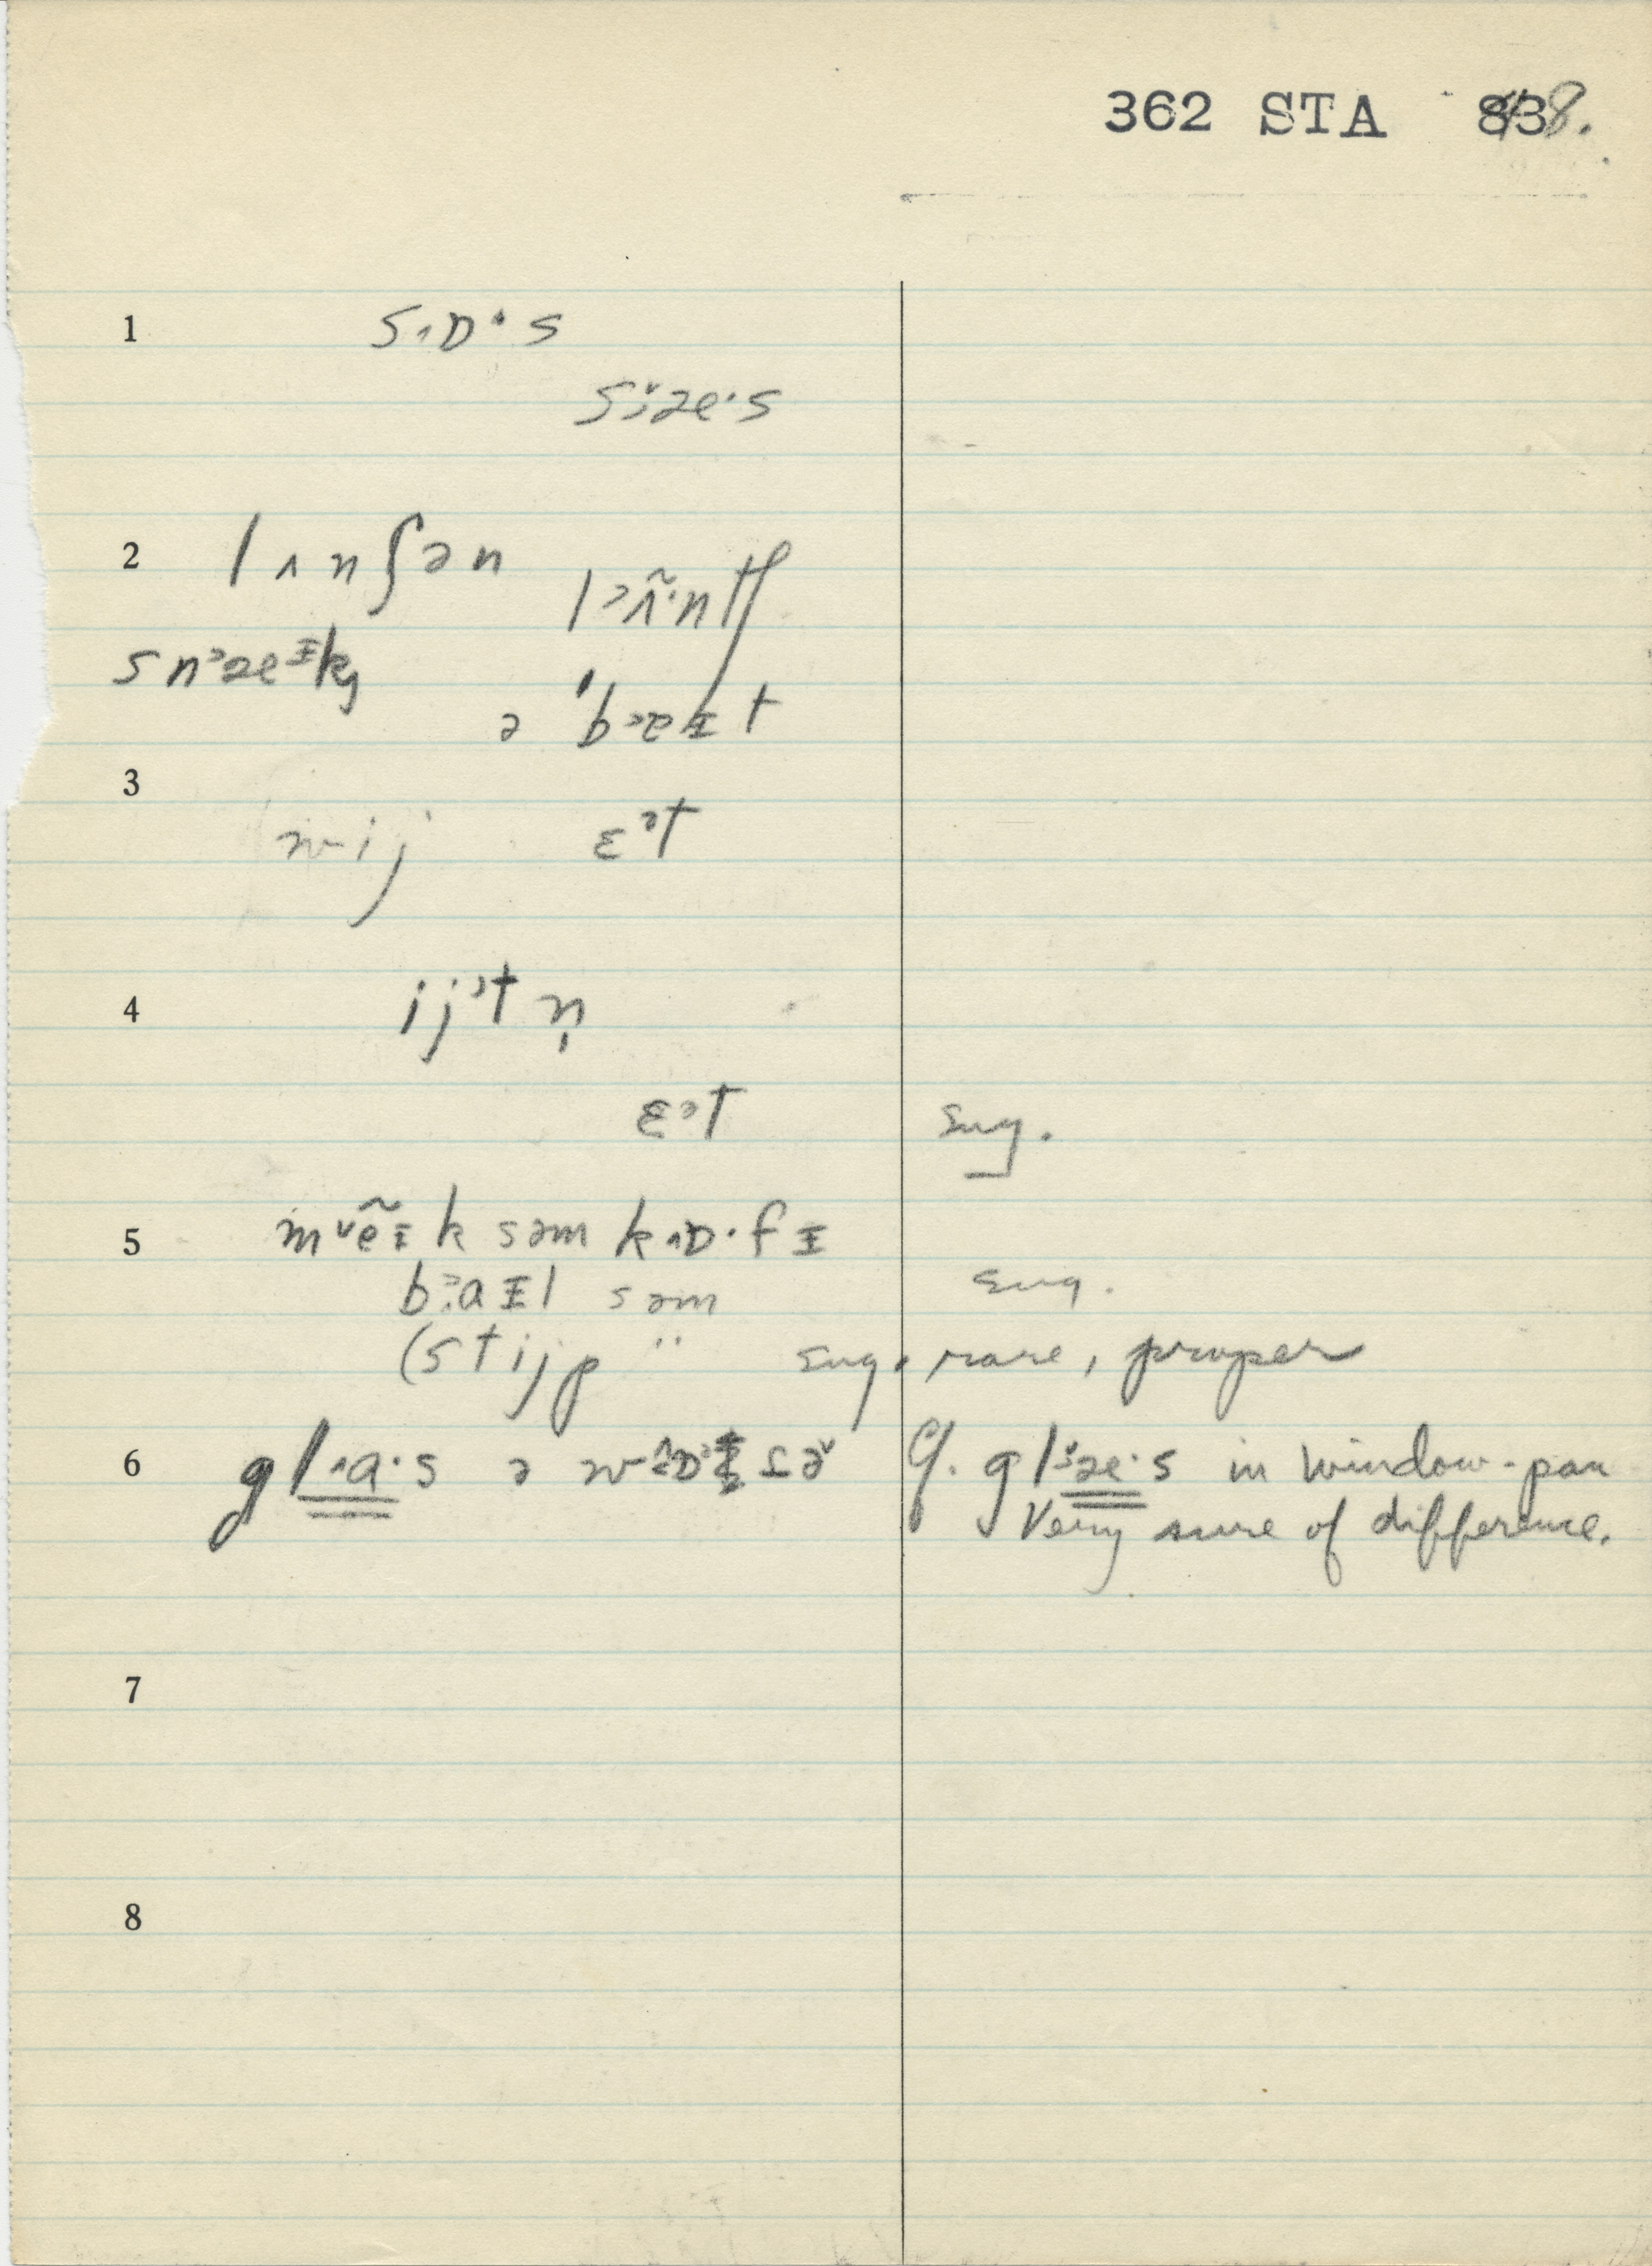 362 STA 48.
1 s˄ɒ·s
s˅æ·s
2 lʌnʃən
l˃ʌ̃·ntʃ
sn˃æᵻk
ə 'b˃ɐᵻt
3 wij ɛ˃t
4 ij˃tn̩
ɛ˃t sug.
5 m˅ẽᵻk səm k˄ɒ·fᵻ
b˃aᵻl səm sug.
(stijp " sug. rare, proper
6 gl˄a·s ə
Cf. gl˅æ·s in window-pan
Very sure of difference.
7
8